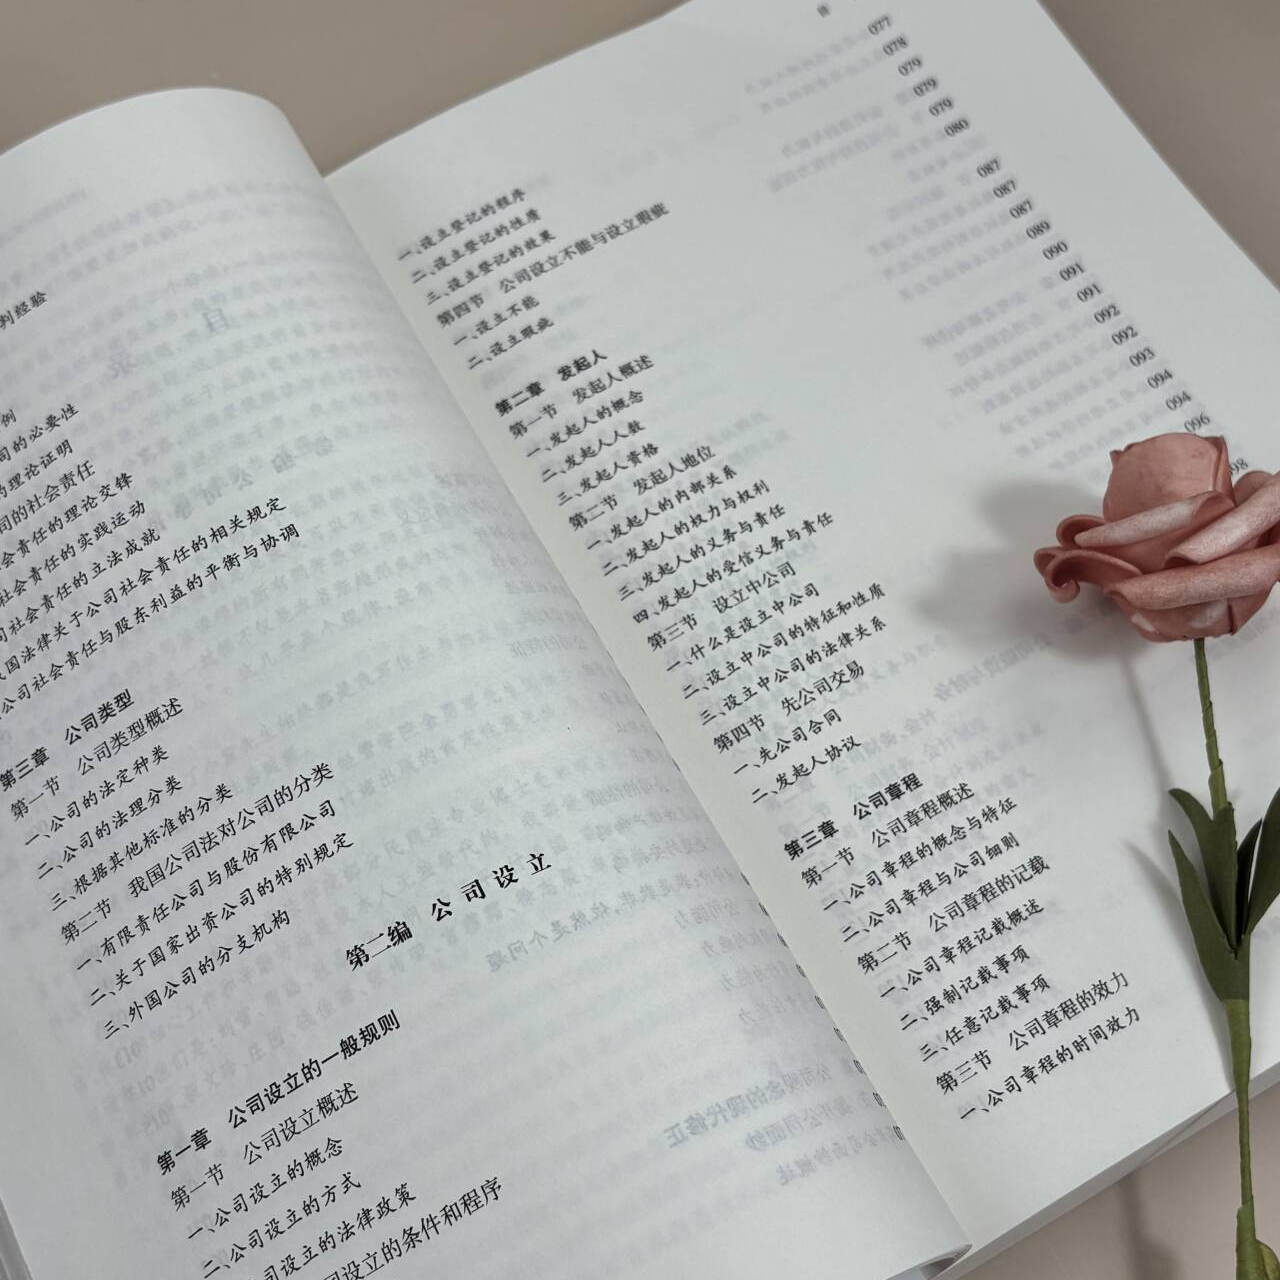 判经验
例
司的必要性
的理论证明
司的社会责任
会责任的理论交锋
社会责任的实践运动
司社会责任的立法成就
国法律关于公司社会责任的相关规定
公司社会责任与股东利益的平衡与协调
第三章 公司类型
第一节 公司类型概述
一、公司的法定种类
二、公司的法理分类
三、根据其他标准的分类
第二节 我国公司法对公司的分类
一、有限责任公司与股份有限公司
二、关于国家出资公司的特别规定
三、外国公司的分支机构
第二编 公司设立
第一章 公司设立的一般规则
第一节 公司设立概述
一、公司设立的概念
二、公司设立的方式
设立的法律政策
司设立的条件和程序
一、设立登记的程序
二、设立登记的性质
三、设立登记的效果
第四节 公司设立不能与设立瑕疵
一、设立不能
二、设立瑕疵
第二章 发起人
第一节 发起人概述
一、发起人的概念
二、发起人人数
三、发起人资格
第二节 发起人地位
一、发起人的内部关系
二、发起人的权力与权利
三、发起人的义务与责任
四、发起人的受信义务与责任
第三节 设立中公司
一、什么是设立中公司
二、设立中公司的特征和性质
三、设立中公司的法律关系
第四节 先公司交易
一、先公司合同
二、发起人协议
第三章 公司章程
第一节 公司章程概述
一、公司章程的概念与特征
二、公司章程与公司细则
第二节 公司章程的记载
一、公司章程记载概述
二、强制记载事项
三、任意记载事项
第三节 公司章程的效力
一、公司章程的时间效力
077
078
079
079
079
080
087
087
087
089
090
091
091
092
092
093
094
094
096
98